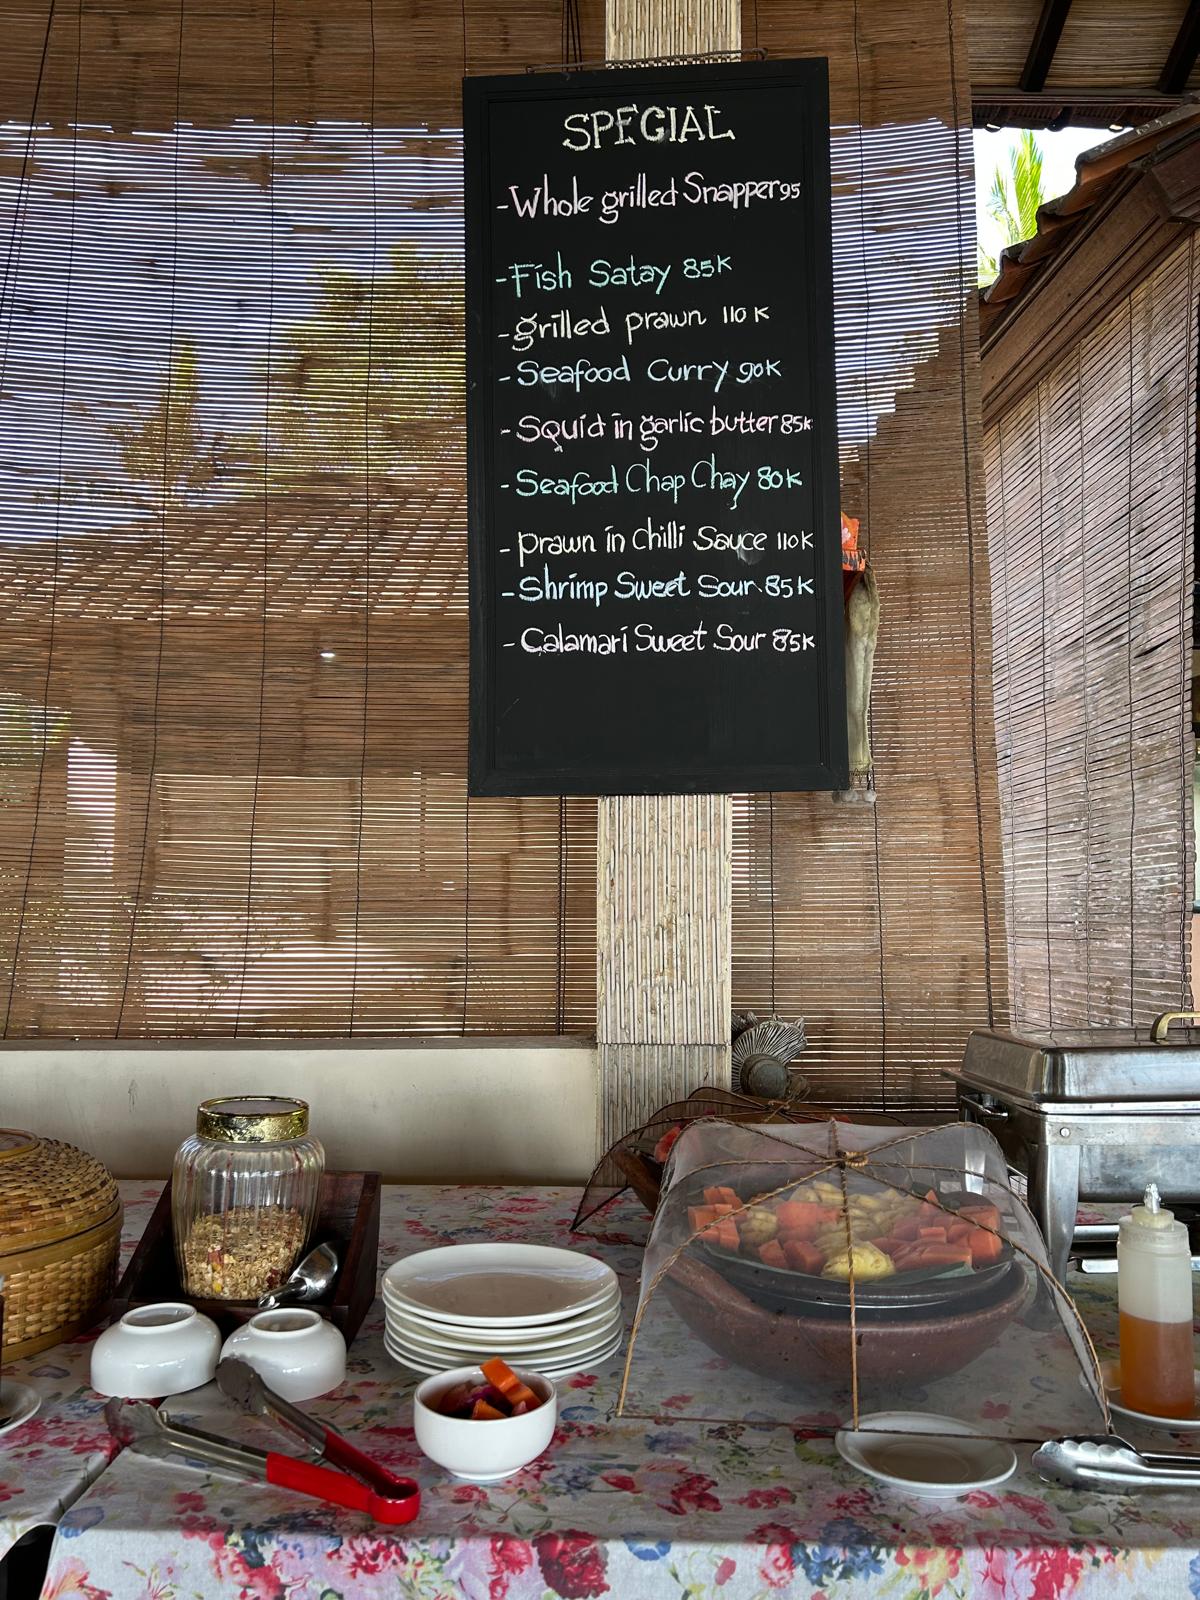 SPECIAL
-Whole grilled Snapper 95
-Fish Satay 85K
-grilled prawn 110K
-Seafood Curry 90K
-Squid in garlic butter 85K
-Seafood Chap Chay 80K
-prawn in chilli Sauce 110K
-Shrimp Sweet Sour 85K
-Calamari Sweet Sour 85K